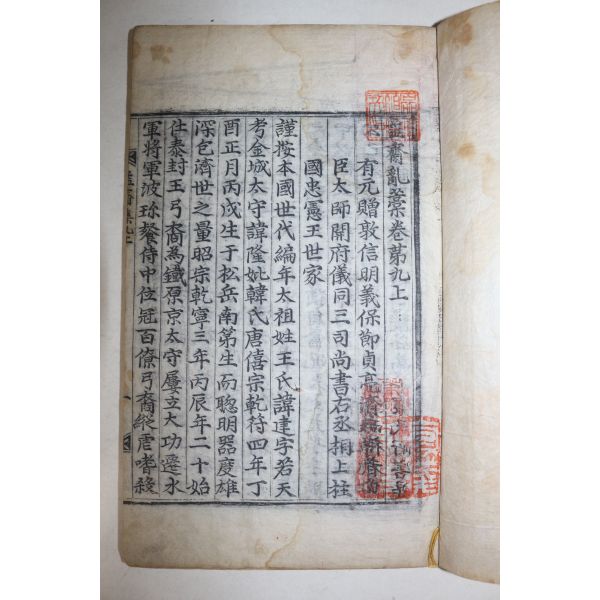 益齋亂藁卷第九上
有元贈敦信明義保節貞亮濟美翊
臣太師開府儀同三司尚書右丞相上柱
國忠憲王世家
謹按本國世代編年太祖姓王氏諱建字若天
考金城太守諱隆妣韓氏唐僖宗乾符四年丁
酉正月丙戌生于松岳南第生而聰明器度雄
深包濟世之量昭宗乾寧三年丙辰年二十始
仕泰封王弓裔為鐵原京太守屢立大功遷水
軍將軍波珍餐侍中位冠百僚弓裔縱虐嗜殺